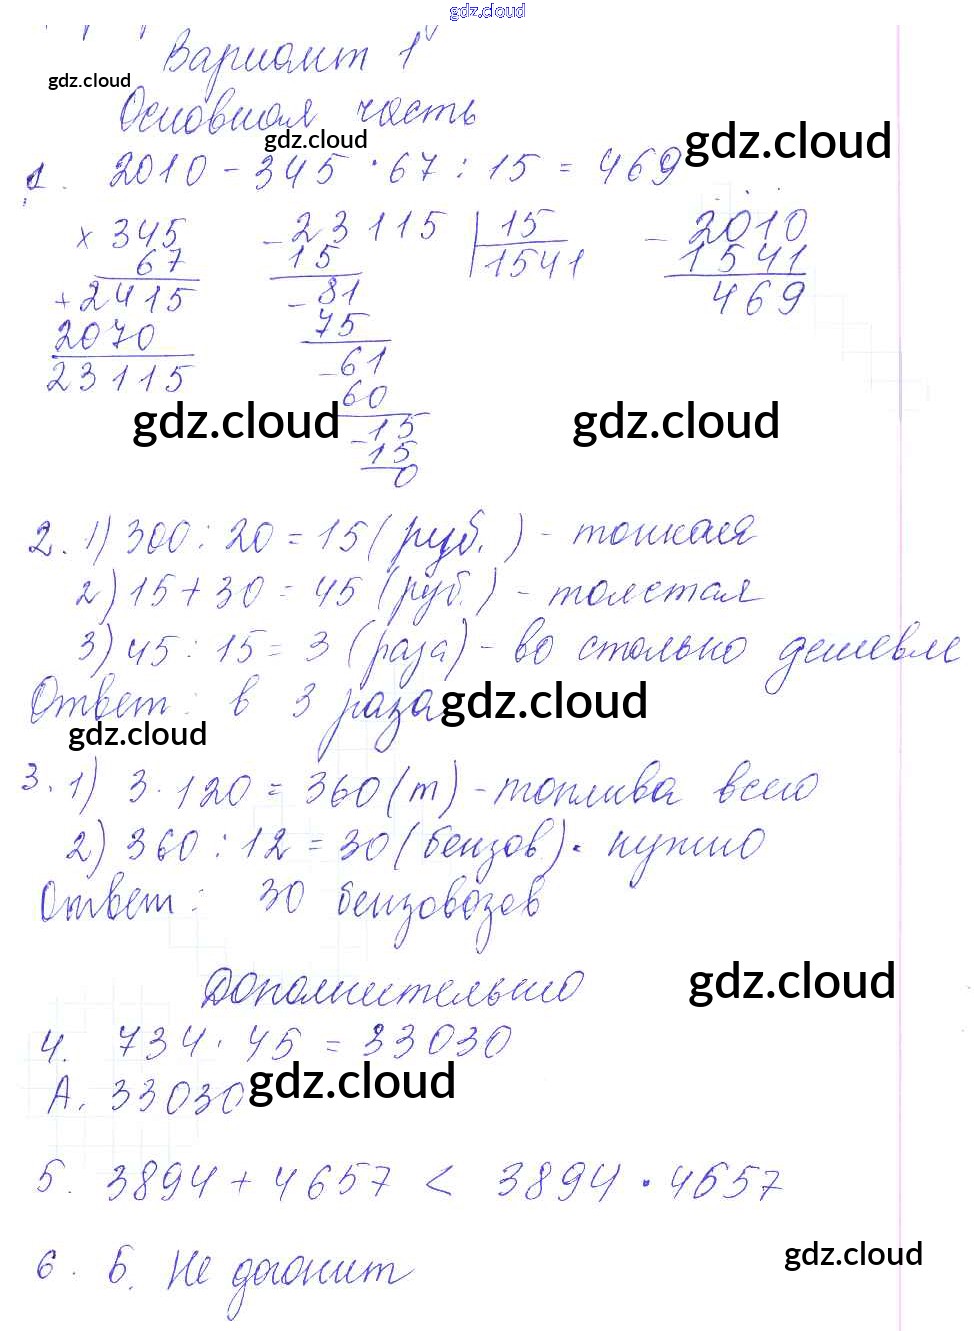 gdz.cloud
Вариант 1
gdz.cloud
Основная часть
gdz.cloud
gdz.cloud
1. 2010 - 345 · 67 : 15 = 469
× 345
67
+ 2415
2070
23115
- 23115 | 15
15 1541
- 81
75
- 61
60
- 15
15
0
- 2010
1541
469
gdz.cloud
gdz.cloud
2. 1) 300 : 20 = 15 (руб.) - тонкая
2) 15 + 30 = 45 (руб.) - толстая
3) 45 : 15 = 3 (раза) - во столько дешевле
Ответ: в 3 раза
gdz.cloud
gdz.cloud
3. 1) 3 · 120 = 360 (т) - топлива всего
2) 360 : 12 = 30 (бензов.) - нужно
Ответ: 30 бензовозов
Дополнительно
gdz.cloud
4. 734 · 45 = 33030
А. 33030
gdz.cloud
5. 3894 + 4657 < 3894 · 4657
6. Б. Не догонит
gdz.cloud